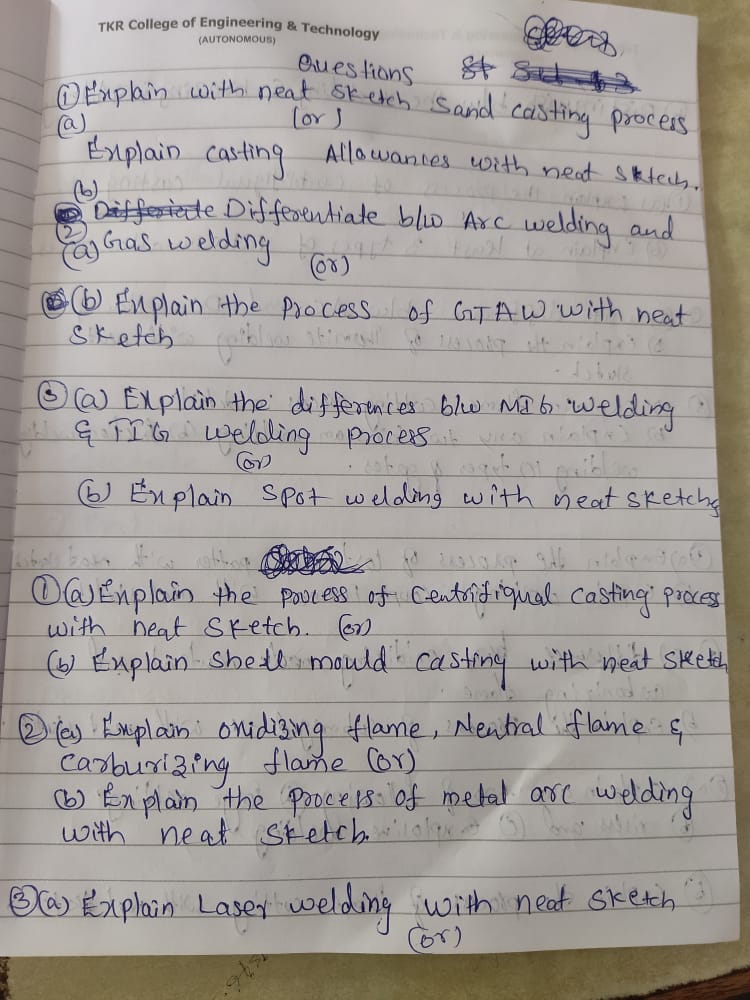 TKR College of Engineering & Technology
(AUTONOMOUS)
Questions
① Explain with neat sketch Sand casting process
(a) (or)
Explain casting Allowances with neat sketch.
(b)
② Differentiate b/w Arc welding and
(a) Gas welding
(or)
(b) Explain the Process of GTAW with neat
Sketch
③ (a) Explain the differences b/w MIG welding
& TIG welding process
(or)
(b) Explain Spot welding with neat sketchs
① (a) Explain the process of Centrifiqual casting process
with neat Sketch. (or)
(b) Explain Shell mould casting with neat sketch
② (a) Explain oxidizing flame, Neutral flame &
Carburizing flame (or)
(b) Explain the process of metal arc welding
with neat Sketch.
③ (a) Explain Laser welding with neat sketch
(or)